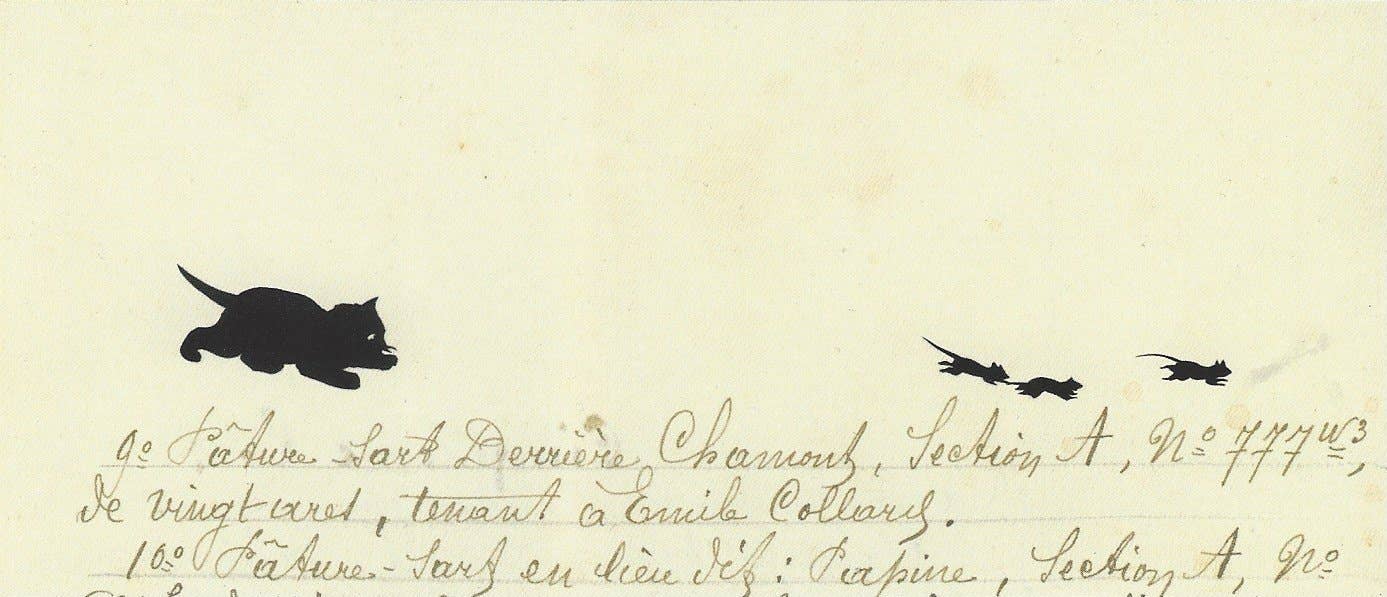 9º Pâture-Sart Derrière Chamont, Section A, Nº 777 w3,
de vingt ares, tenant à Emile Collard.
10º Pâture-Sart en lieu dit : Papine, Section A, Nº